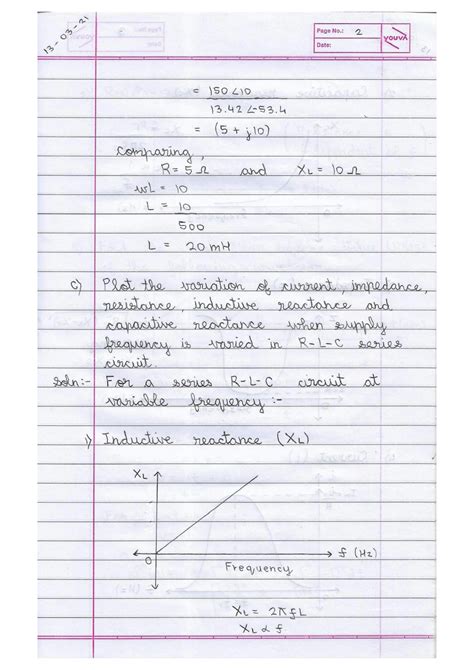 13-03-21
Page No.: 2
Date:
youva
= 150∠10
13.42∠-53.4
= (5 + j10)
Comparing,
R = 5 Ω and XL = 10 Ω
wL = 10
L = 10
500
L = 20 mH
c) Plot the variation of current, impedance,
resistance, inductive reactance and
capacitive reactance when supply
frequency is varied in R-L-C series
circuit.
Soln:- For a series R-L-C circuit at
variable frequency :-
1) Inductive reactance (XL)
XL
0
f (Hz)
Frequency
XL = 2πfL
XL ∝ f